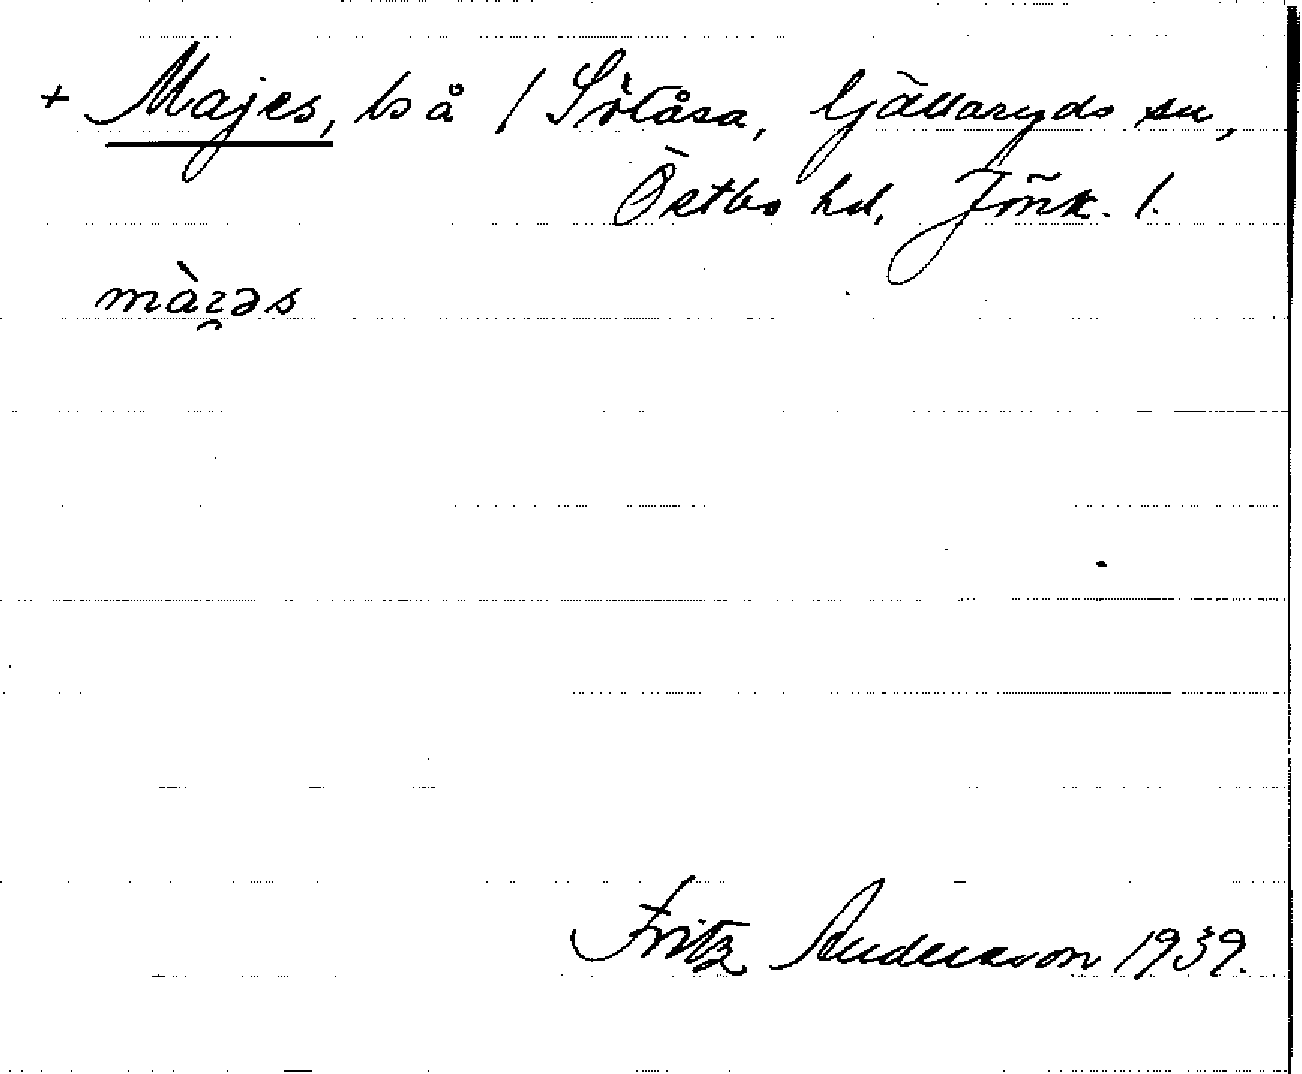 + Majes, bs å / Sötåsa, Ljällaryds sn,
Östbo hd, Jönk. l.
màɪ̯əs
Fritz Andersson 1939.